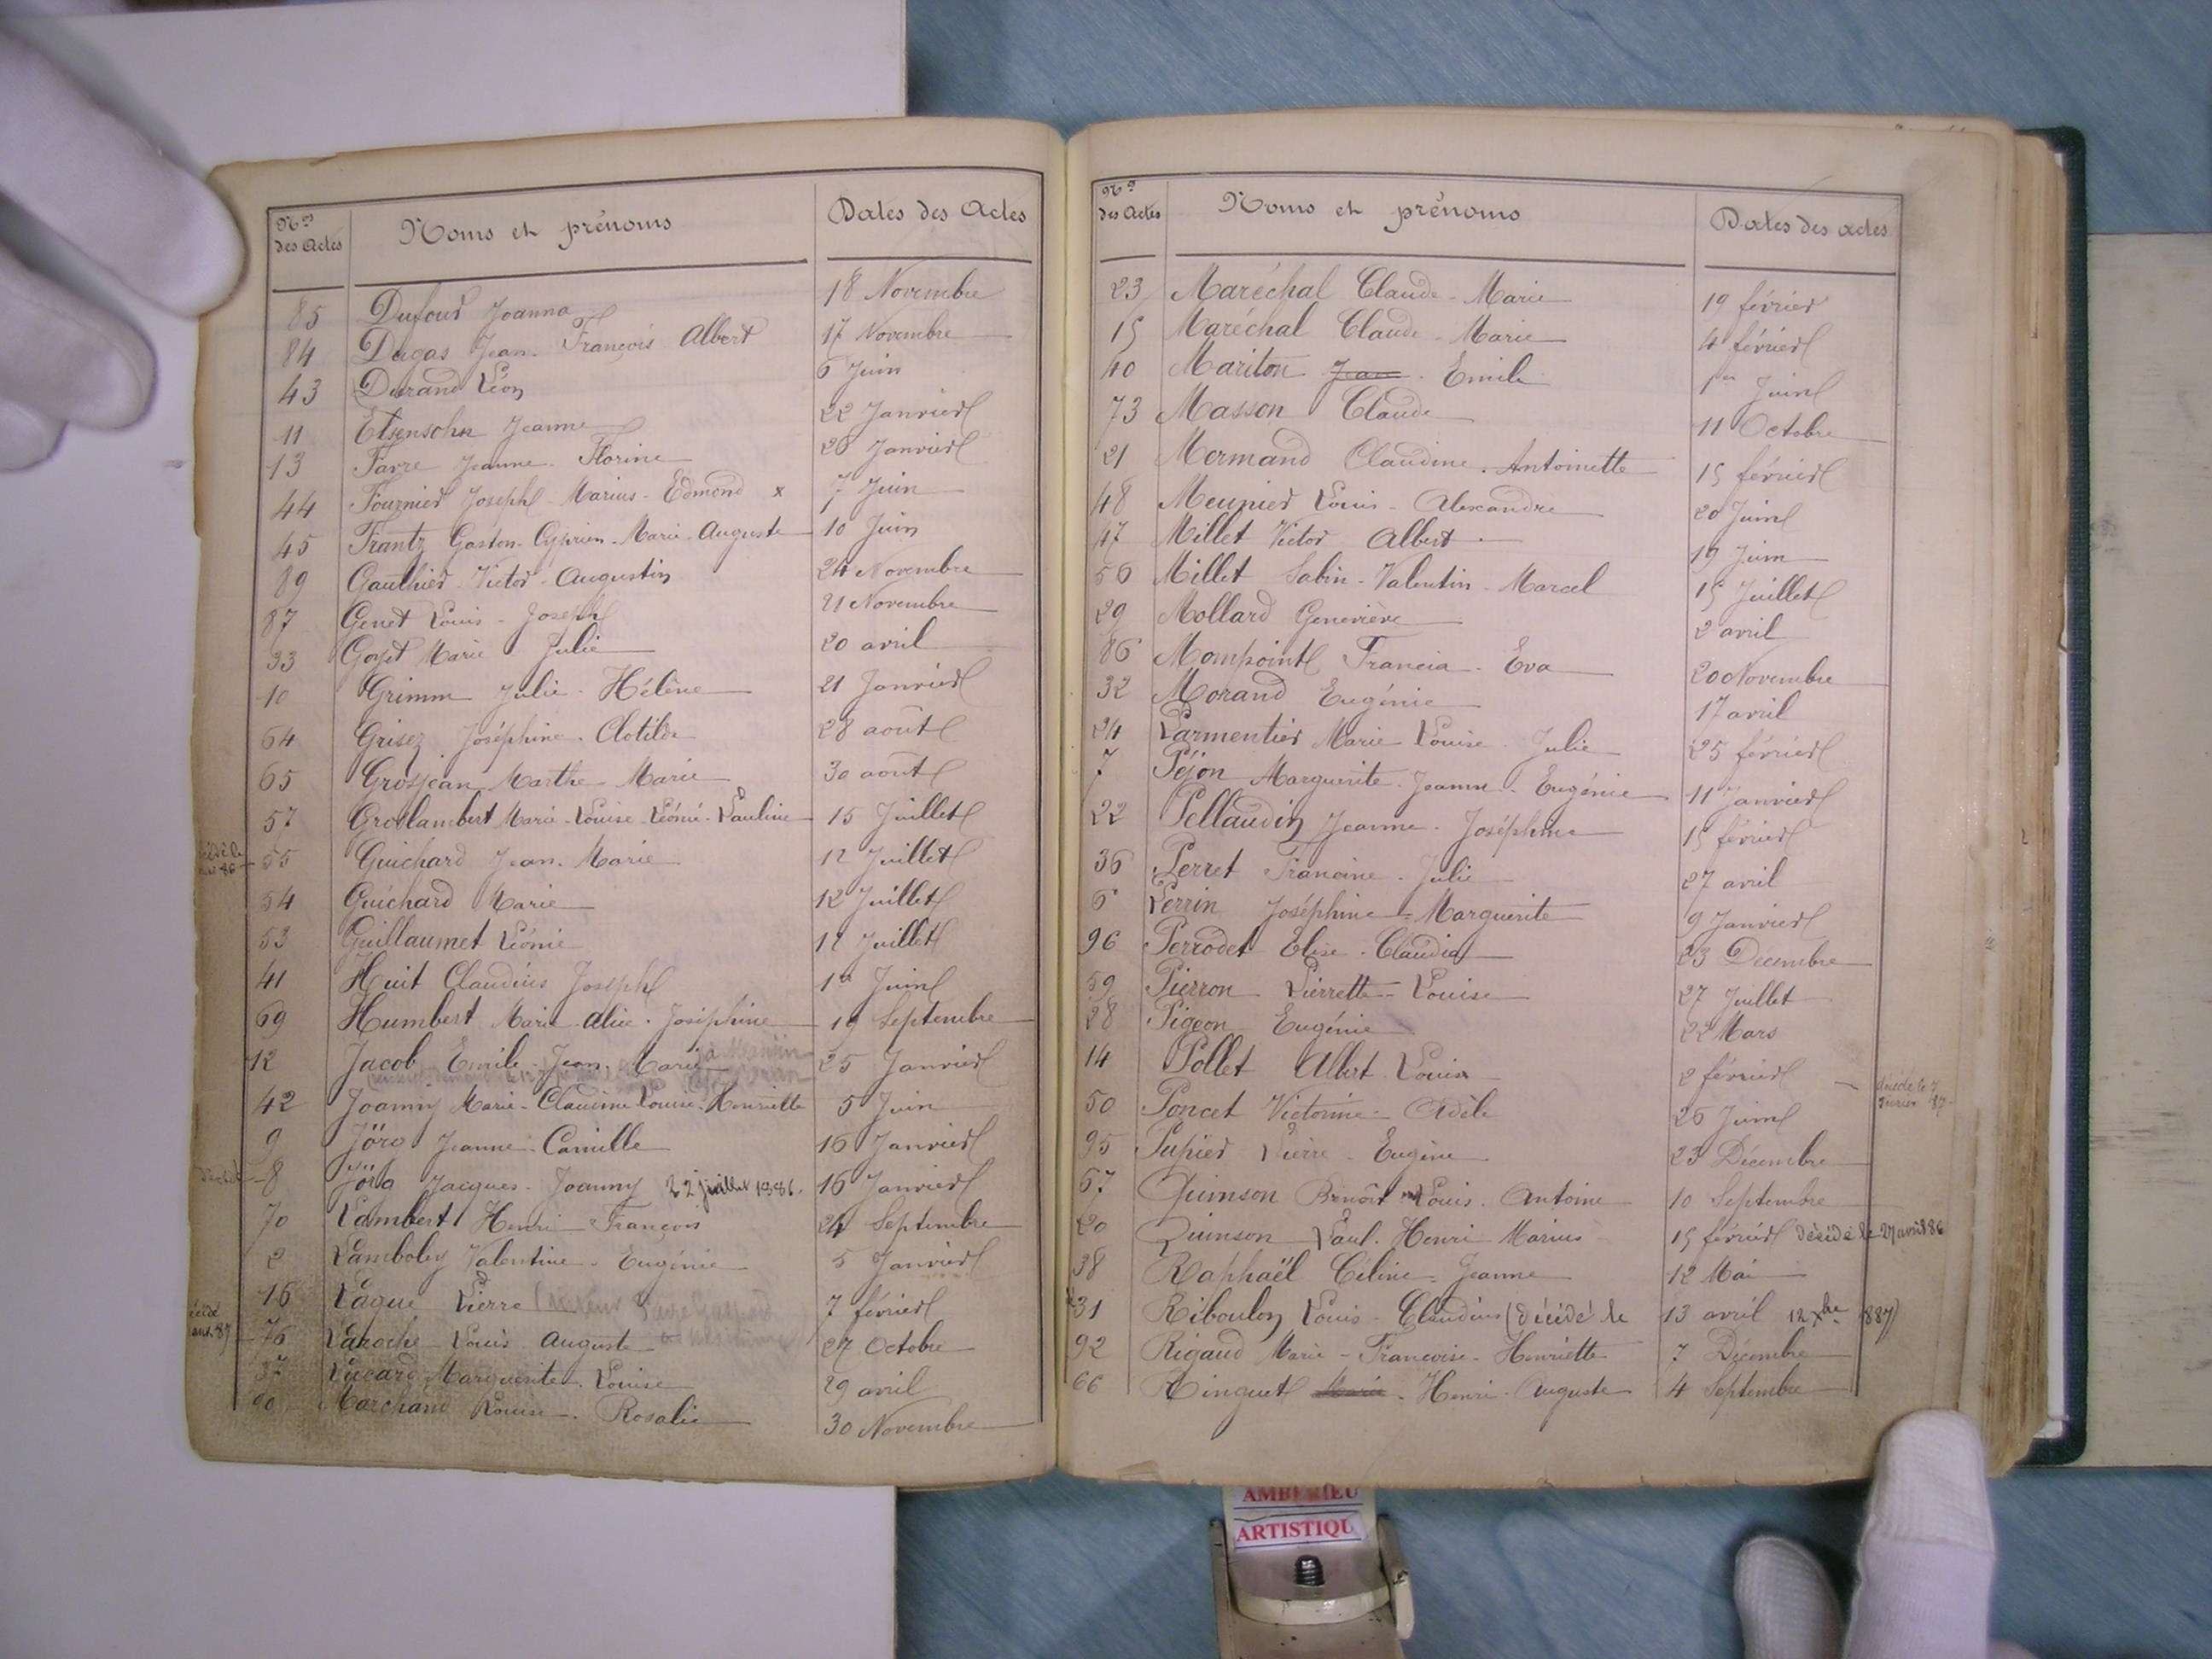 Nos des Actes Noms et prénoms Dates des Actes
85 Dufour Joanna 18 Novembre
84 Dugas Jean-François Albert 17 Novembre
43 Durand Léon 6 Juin
11 Etsensohn Jeanne 22 Janvier
13 Favre Jeanne-Florine 26 Janvier
44 Fournier Joseph-Marius-Edmond x 7 Juin
45 Frantz Gaston-Cyprien-Marie-Auguste 10 Juin
89 Gauthier Victor-Augustin 24 Novembre
87 Genet Louis-Joseph 21 Novembre
33 Goyet Marie Julie 20 avril
10 Grimm Julie-Hélène 21 Janvier
64 Grisez Joséphine-Clotilde 28 août
65 Grosjean Marthe-Marie 30 août
57 Groslambert Marie-Louise-Léonie-Pauline 15 Juillet
55 Guichard Jean-Marie 12 Juillet
54 Guichard Marie 12 Juillet
53 Guillaumet Léonie 12 Juillet
41 Huit Claudius Joseph 1er Juin
69 Humbert Marie-Alice-Joséphine 19 Septembre
12 Jacob Emile-Jean-Marie 25 Janvier
42 Joanny Marie-Claudine Louise-Henriette 5 Juin
9 Jörg Jeanne-Camille 16 Janvier
8 Jörg Jacques-Joanny 22 juillet 1886. 16 Janvier
70 Lambert Henri-François 24 Septembre
2 Lamboley Valentine-Eugénie 5 Janvier
16 Lagué Pierre 7 février
76 Laroche Louis Auguste 27 Octobre
37 Lucard Marguerite-Louise 29 avril
90 Marchand Louise-Rosalie 30 Novembre
Nos des Actes Noms et prénoms Dates des actes
23 Maréchal Claude-Marie 19 février
15 Maréchal Claude-Marie 4 février
40 Mariton Jean-Emile 1er Juin
73 Masson Claude 11 Octobre
21 Mermand Claudine-Antoinette 15 février
48 Meunier Louis-Alexandre 20 Juin
47 Millet Victor Albert 19 Juin
56 Millet Sabin-Valentin-Marcel 15 Juillet
29 Mollard Geneviève 2 avril
86 Mompoint Francia-Eva 20 Novembre
32 Morand Eugénie 17 avril
24 Parmentier Marie Louise-Julie 25 février
7 Péjon Marguerite-Jeanne-Eugénie 11 Janvier
22 Pellaudin Jeanne-Joséphine 15 février
36 Perret Francine-Julie 27 avril
6 Perrin Joséphine-Marguerite 9 Janvier
96 Perrodet Elise-Claudia 23 Décembre
59 Pierron Pierrette-Louise 27 Juillet
28 Pigeon Eugénie 22 Mars
14 Pollet Albert Louis 2 février
50 Poncet Victorine-Adèle 26 Juin
95 Pupier Pierre-Eugène 23 Décembre
67 Quinson Benoît Louis-Antoine 10 Septembre
20 Quinson Paul-Henri Marius 15 février décédé le 27 avril 86
38 Raphaël Céline-Jeanne 12 Mai
31 Riboulon Louis-Claudius (décédé le 13 avril 12 Xbre 1887)
92 Rigaud Marie-Françoise-Henriette 7 Décembre
66 Ringuet Marie-Henri-Auguste 4 Septembre
AMBERIEU
ARTISTIQU